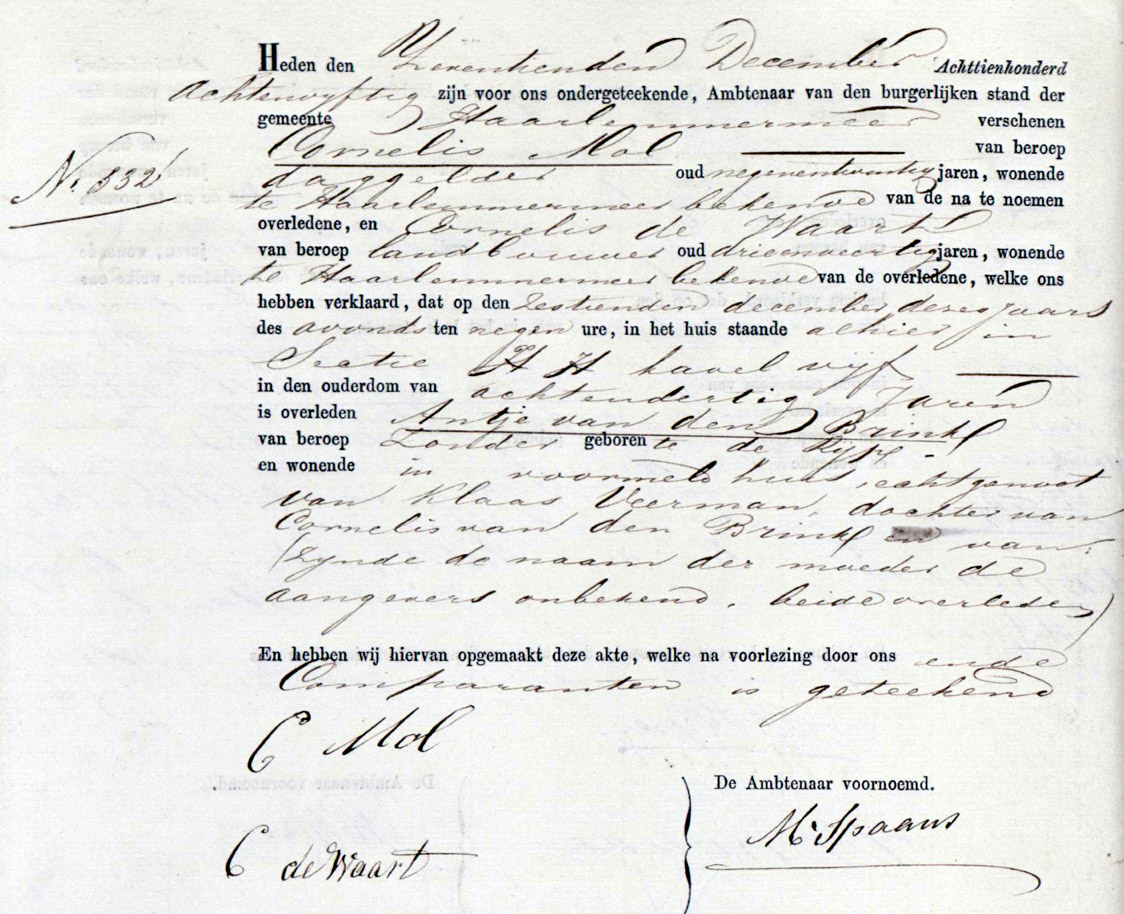 Heden den Zeventienden December Achttienhonderd
achtenvyftig zijn voor ons ondergeteekende, Ambtenaar van den burgerlijken stand der
gemeente Haarlemmermeer verschenen
Cornelis Mol van beroep
No. 332
daggelder oud negenentwintig jaren, wonende
te Haarlemmermeer bekende van de na te noemen
overledene, en Cornelis de Waart
van beroep landbouwer oud drieenveertig jaren, wonende
te Haarlemmermeer bekende van de overledene, welke ons
hebben verklaard, dat op den Zestienden december dezes jaars
des avonds ten negen ure, in het huis staande alhier in
Sectie H H kavel vijf
in den ouderdom van achtendertig Jaren
is overleden Antje van den Brink
van beroep Zonder geboren te de Ryp
en wonende in voormeld huis, echtgenoot
van Klaas Veerman, dochter van
Cornelis van den Brink en van
(zynde de naam der moeder de
aangevers onbekend, beide overleden)
En hebben wij hiervan opgemaakt deze akte, welke na voorlezing door ons ende
Comparanten is geteekend
C Mol
De Ambtenaar voornoemd.
M Spaans
C de Waart